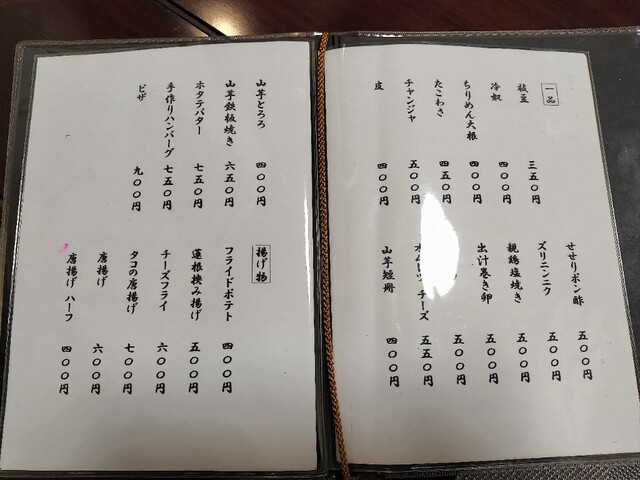 一品
枝豆 三五〇円
冷奴 四〇〇円
ちりめん大根 四〇〇円
たこわさ 四五〇円
チャンジャ 五〇〇円
皮 四〇〇円
せせりポン酢 五〇〇円
ズリニンニク 五〇〇円
親鶏塩焼き 五〇〇円
出汁巻き卵 五〇〇円
五五〇円
チーズ 五五〇円
山芋短冊 四〇〇円
山芋とろろ 四〇〇円
山芋鉄板焼き 六五〇円
ホタテバター 七五〇円
手作りハンバーグ 七五〇円
ピザ 九〇〇円
揚げ物
フライドポテト 四〇〇円
蓮根挟み揚げ 五〇〇円
チーズフライ 六〇〇円
タコの唐揚げ 七〇〇円
唐揚げ 六〇〇円
唐揚げ ハーフ 四〇〇円